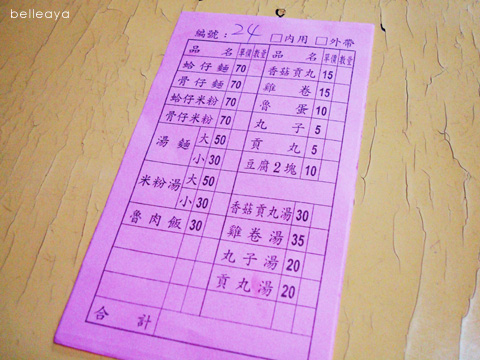 belleaya
編號：24 □內用 □外帶
品名 單價 數量 品名 單價 數量
蛤仔麵 70 香菇貢丸 15
骨仔麵 70 雞卷 15
蛤仔米粉 70 魯蛋 10
骨仔米粉 70 丸子 5
湯麵 大 50 貢丸 5
小 30 豆腐2塊 10
米粉湯 大 50
小 30 香菇貢丸湯 30
魯肉飯 30 雞卷湯 35
丸子湯 20
貢丸湯 20
合計